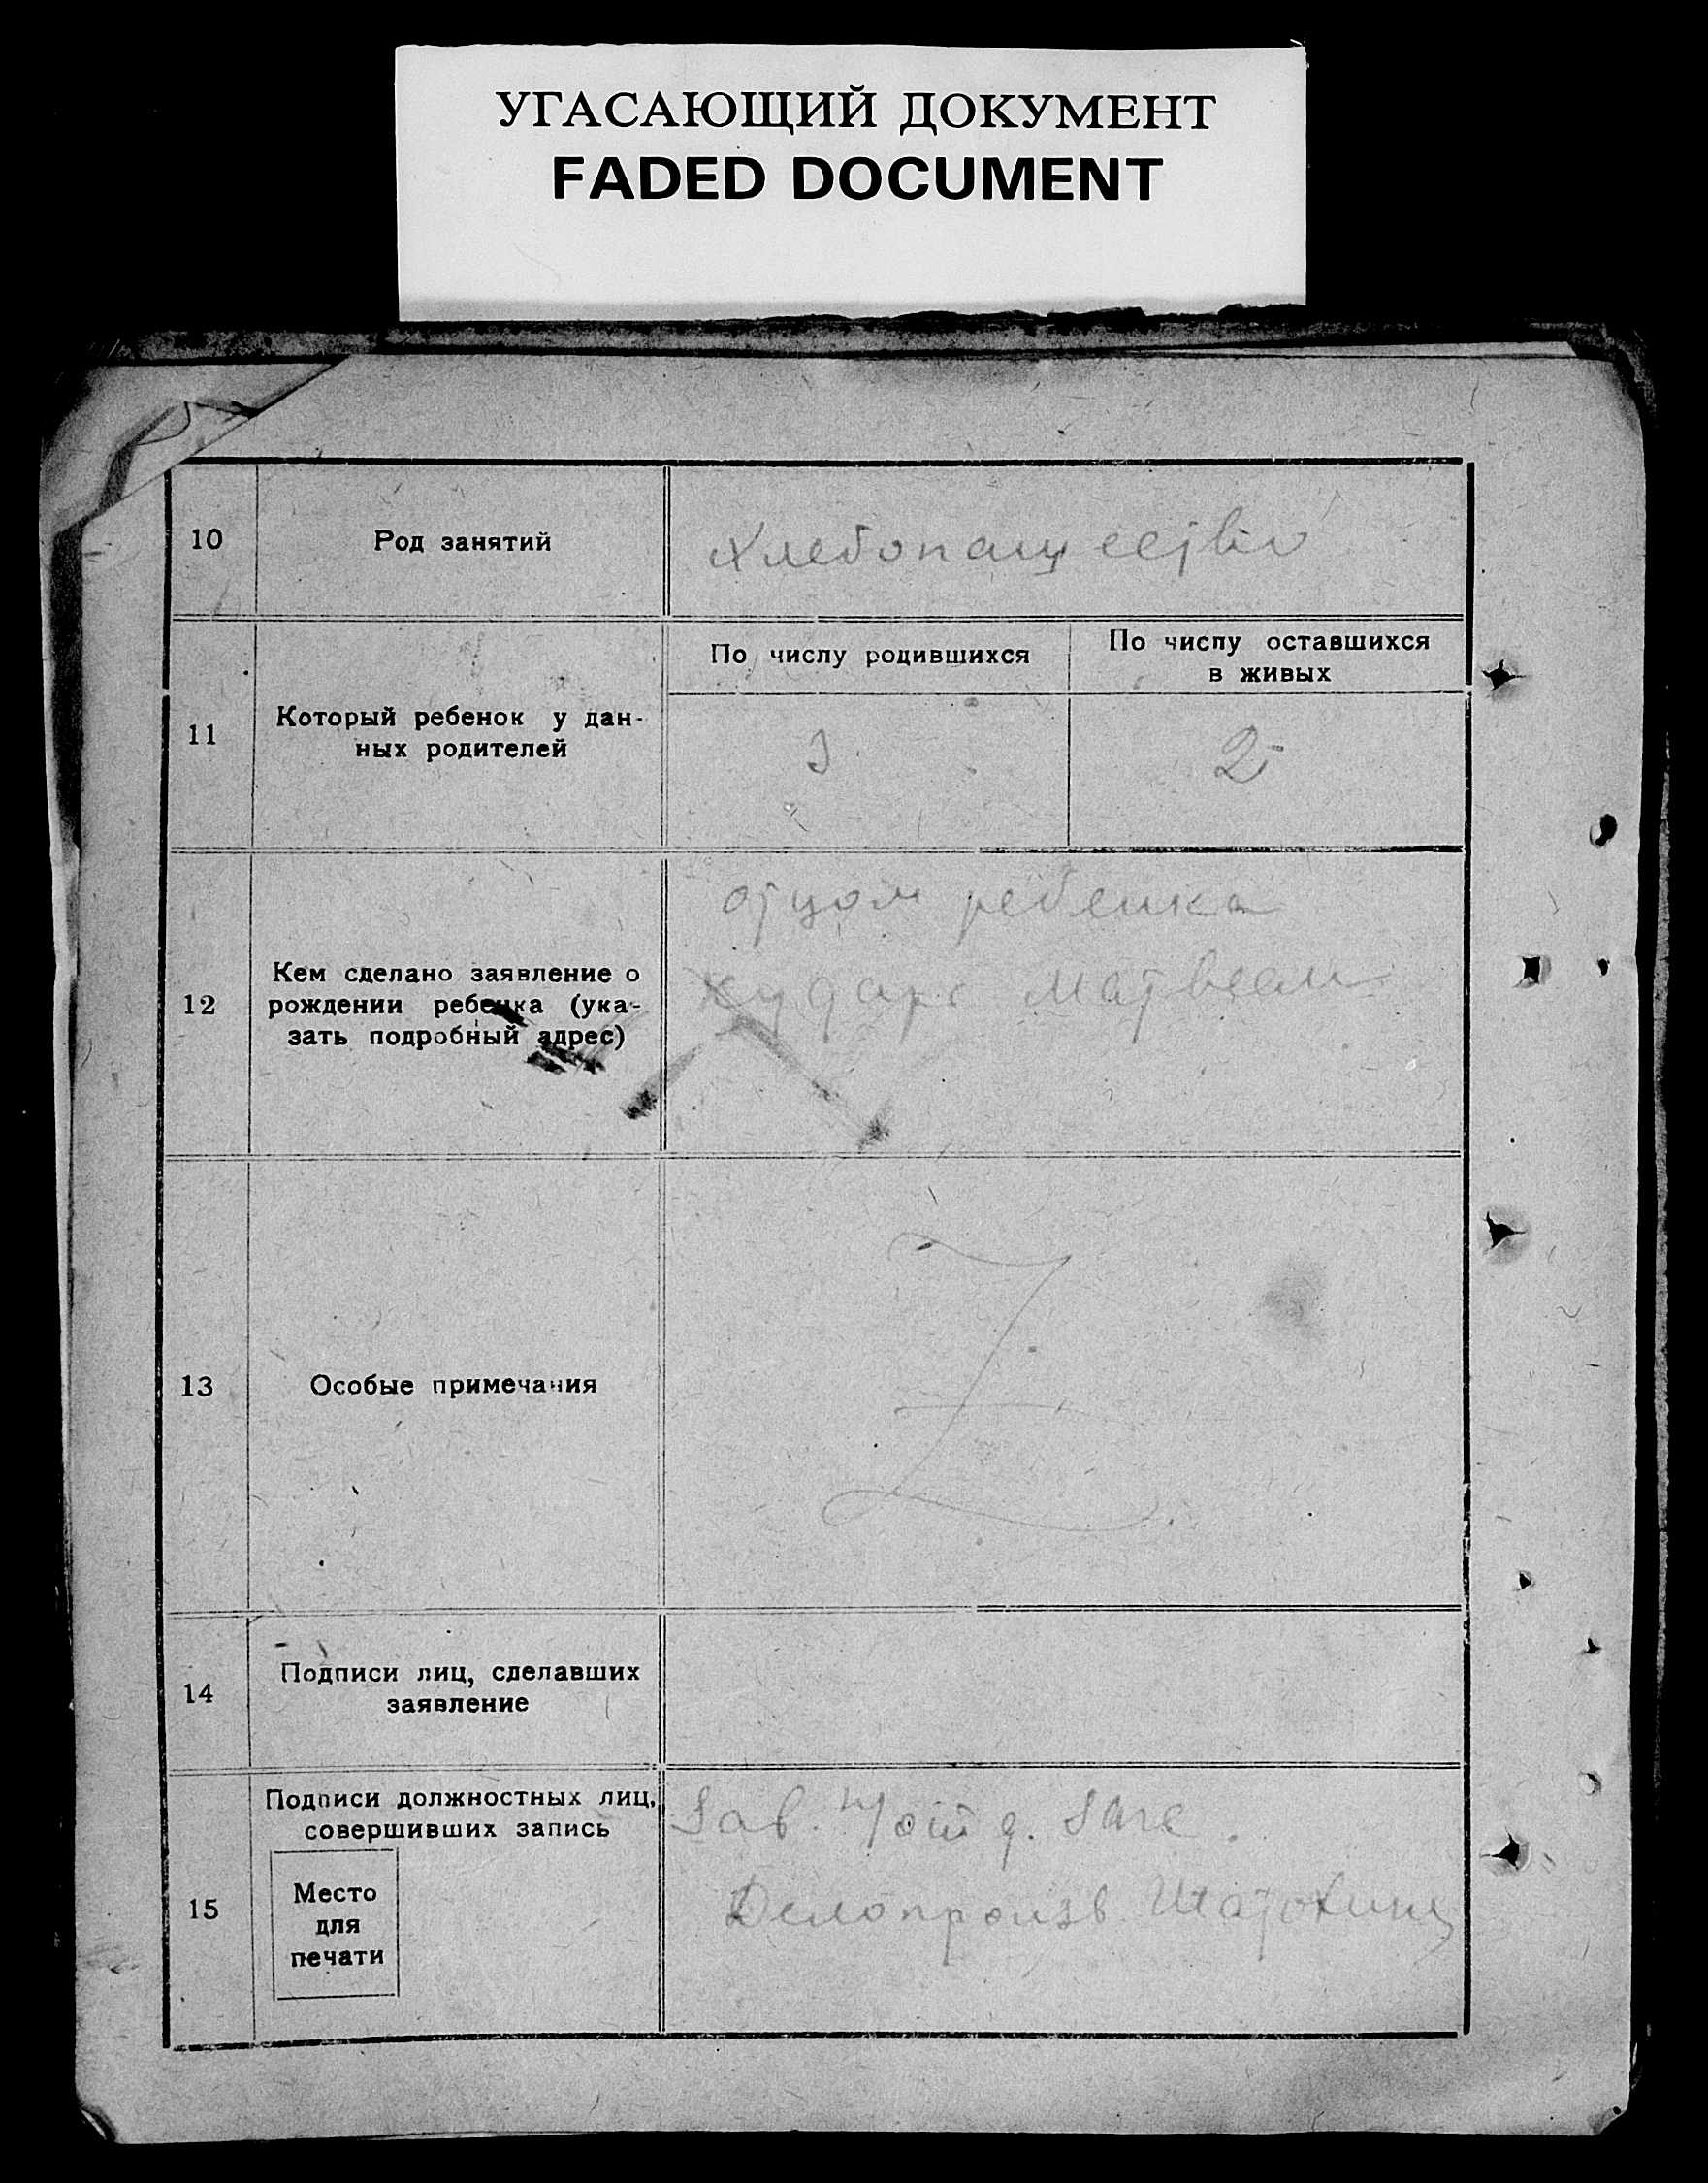 УГАСАЮЩИЙ ДОКУМЕНТ
FADED DOCUMENT
10
Род занятий
Хлебопашество
11
Который ребенок у дан-
ных родителей
По числу родившихся
По числу оставшихся
в живых
3
2
12
Кем сделано заявление о
рождении ребенка (ука-
зать подробный адрес)
отцом ребенка
Матвеем
13
Особые примечания
14
Подписи лиц, сделавших
заявление
15
Подписи должностных лиц,
совершивших запись
Место
для
печати
Зав.
Делопроизв